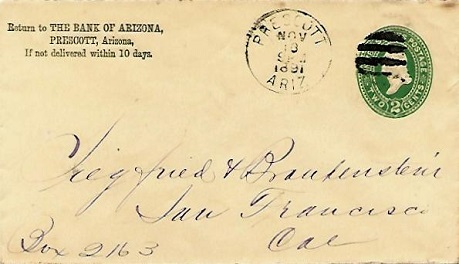 Return to THE BANK OF ARIZONA,
PRESCOTT, Arizona,
If not delivered within 10 days.
PRESCOTT
NOV
1891
ARIZ
POSTAGE
TWO 2 CENTS
Siegfried & Brandenstein
San Francisco
Box 2163
Cal